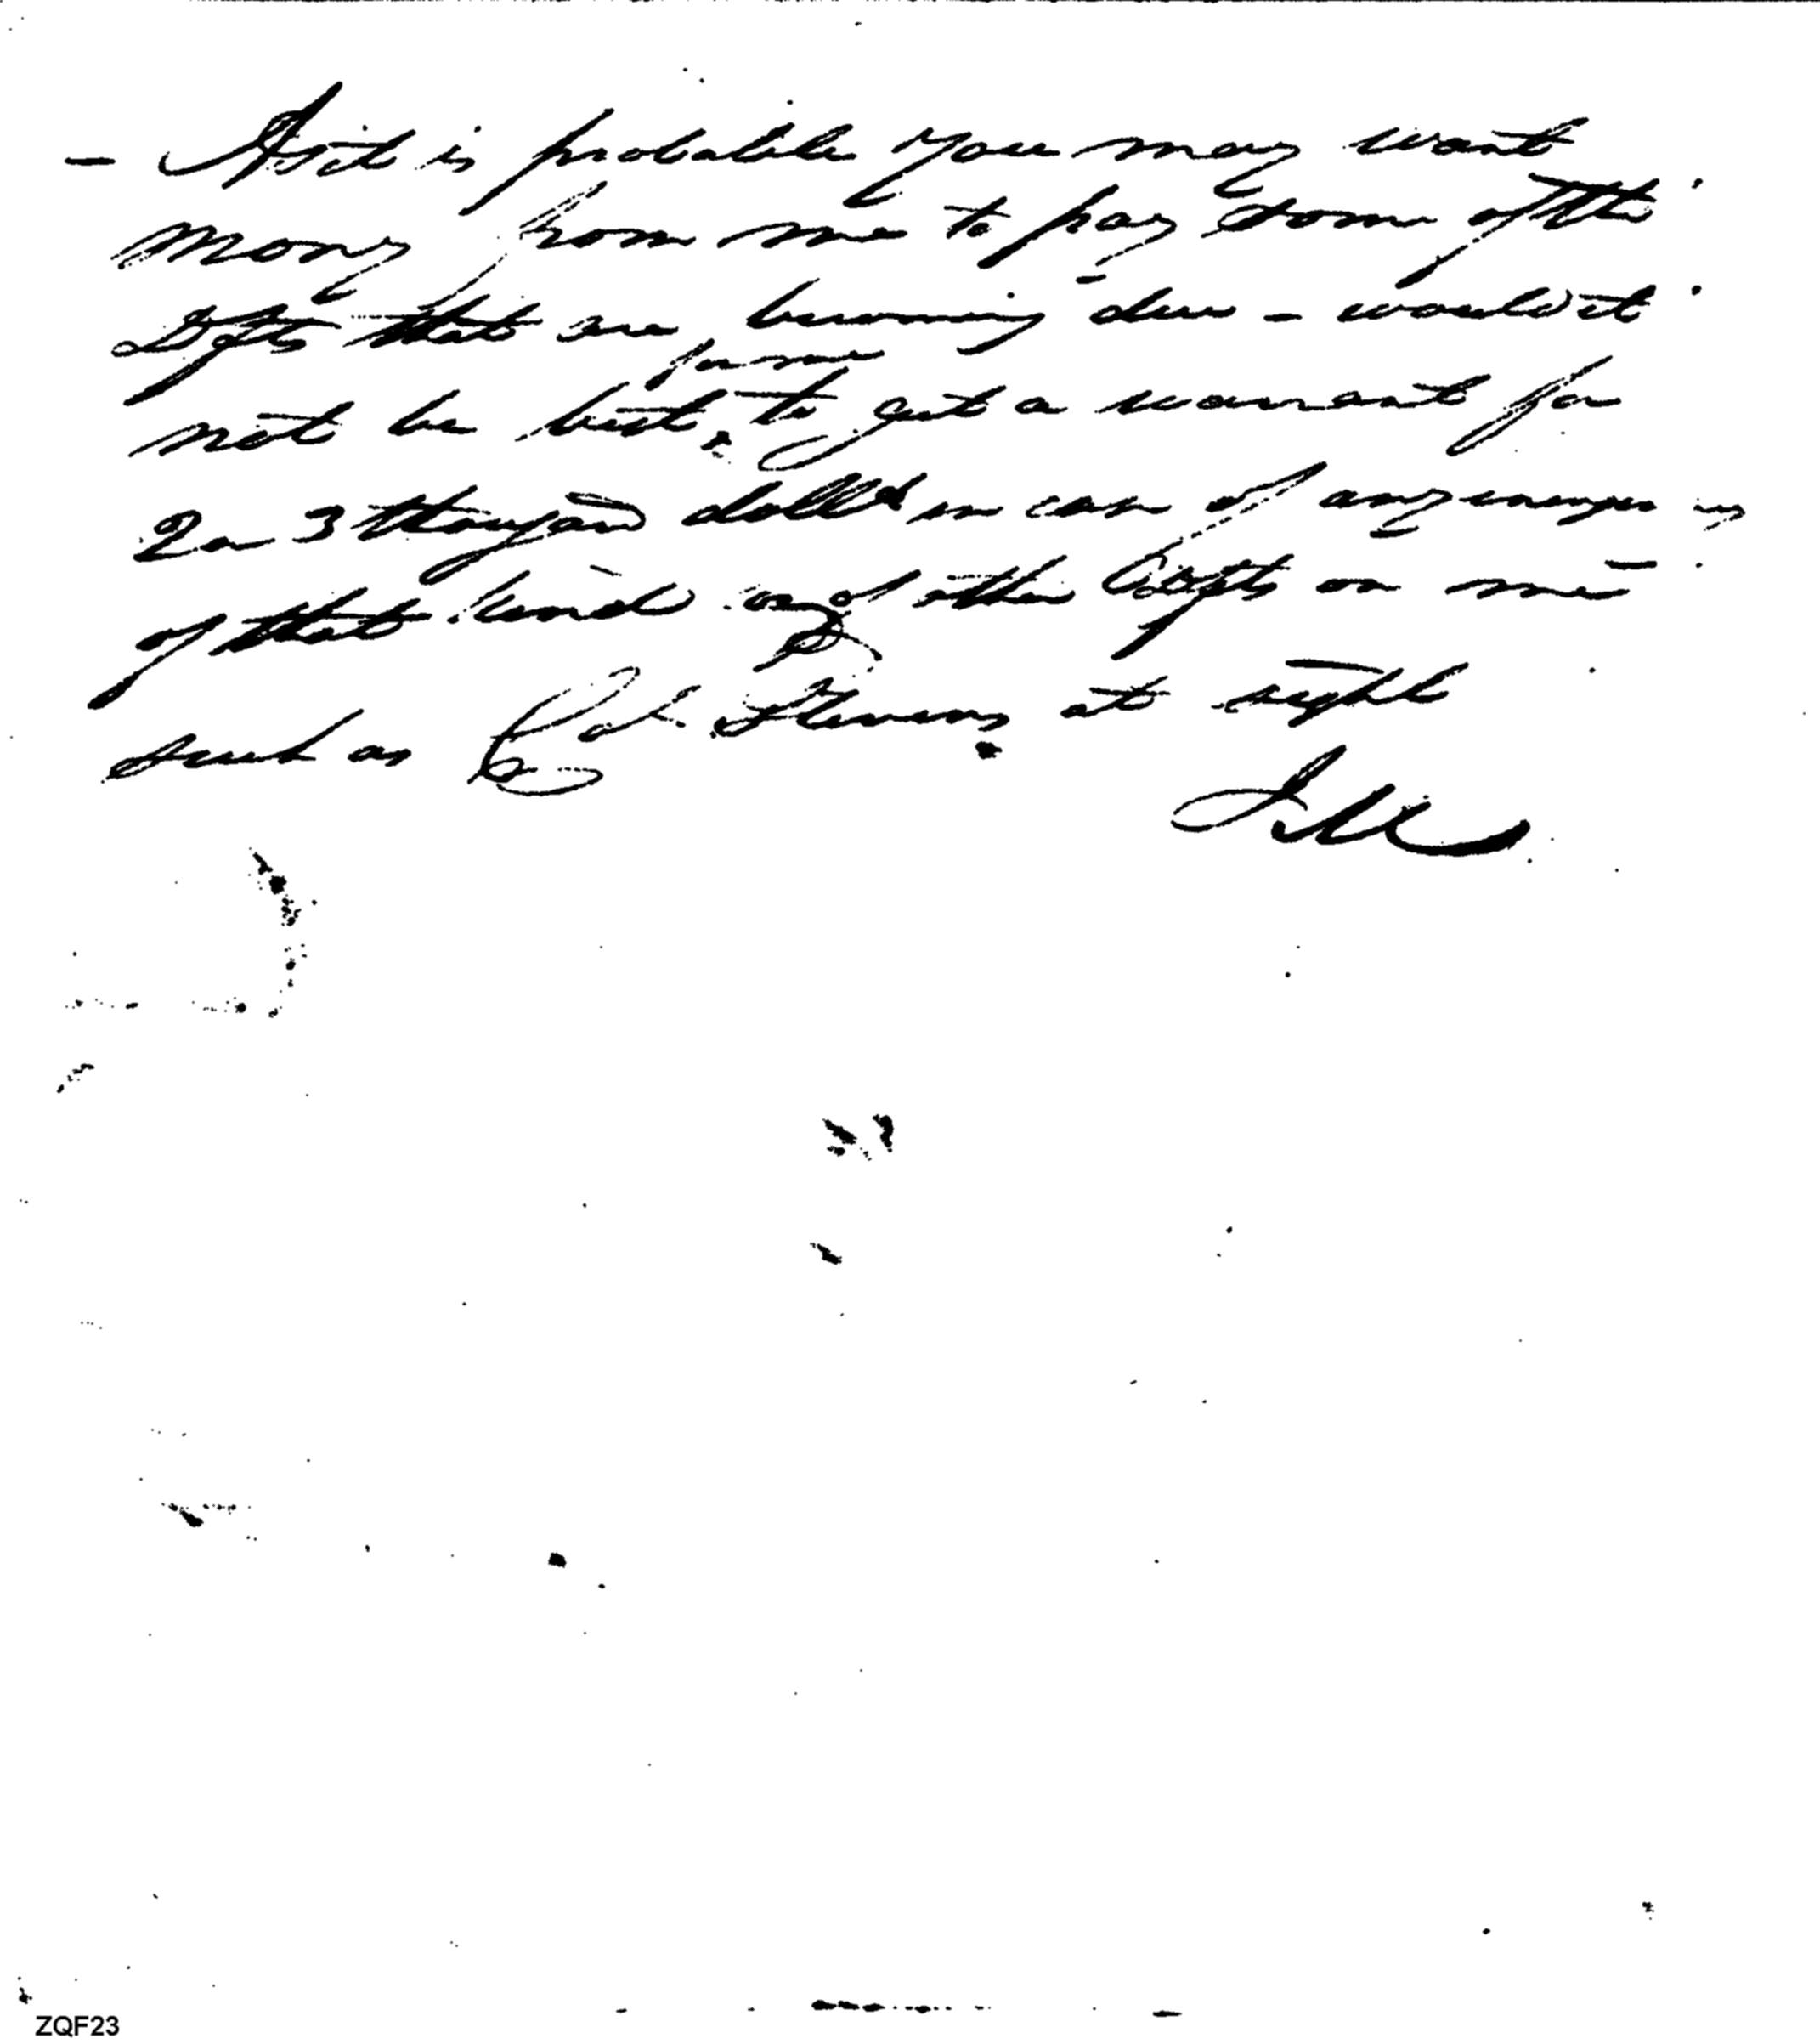 — As it is probable you may want
money from me to pay some of the
Dfts that are becoming due – would it
not be best for me to get a warrant for
2 or 3 thousand dolls in case of any
of that kind and other Dfts on me –
such as Col. Stevens at sight
ZQF23